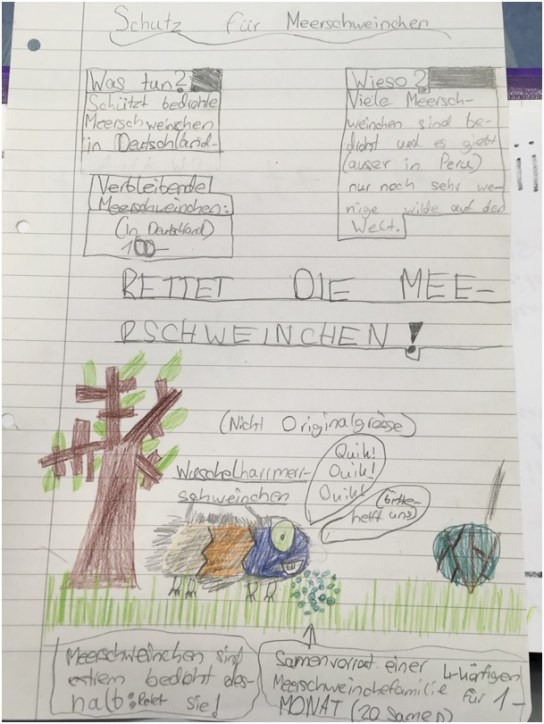 Schutz für Meerschweinchen
Was tun?
Schützt bedrohte
Meerschweinchen
in Deutschland-
Wieso?
Viele Meersch-
weinchen sind be-
droht und es giebt
(auser in Peru)
nur noch sehr we-
nige wilde auf der
Welt.
Verbleibende
Meerschweinchen:
(in Deutschland)
100-
RETTET DIE MEE-
RSCHWEINCHEN!
(Nicht Originalgrösse)
Wuschelharrmerr-
schweinchen
Quik!
Quik!
Quik!
(bitte-
helft uns)
Meerschweinchen sind
extrem bedroht des-
halb: Retet sie!
Samenvorrat einer 4-käfigen
Meerschweinchefamilie für 1-
MONAT (20 Samen)